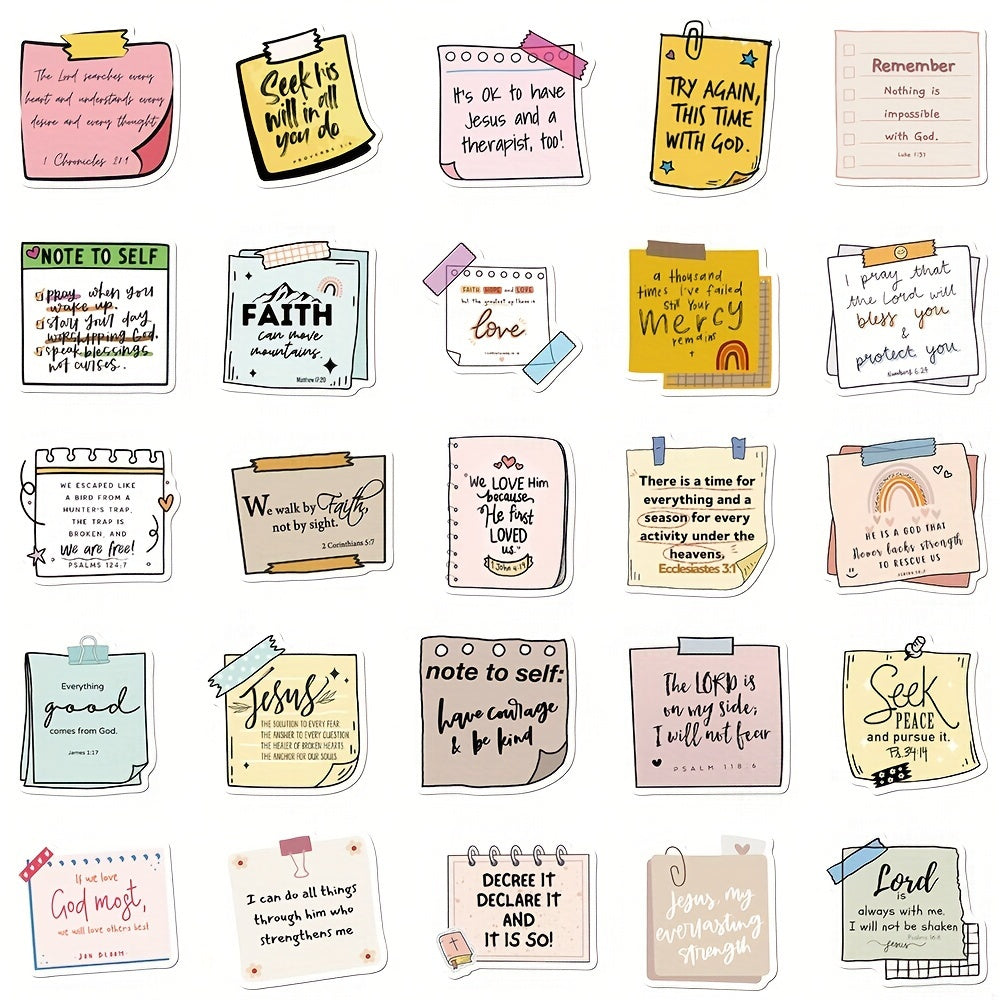 The Lord searches every
heart and understands every
desire and every thought
1 Chronicles 28:9
Seek his
will in all
you do
PROVERBS 3:6
It's OK to have
Jesus and a
therapist, too!
TRY AGAIN,
THIS TIME
WITH GOD.
Remember
Nothing is
impossible
with God.
Luke 1:37
NOTE TO SELF
pray when you
wake up.
start your day
worshipping God.
speak blessings
not curses.
FAITH
can move
mountains.
Matthew 17:20
FAITH HOPE and LOVE
but the greatest of these is
love
a thousand
times I've failed
Still Your
Mercy
remains
I pray that
the Lord will
bless you
&
protect you
Numbers 6:24
WE ESCAPED LIKE
A BIRD FROM A
HUNTER'S TRAP.
THE TRAP IS
BROKEN, AND
We are free!
PSALMS 124:7
We walk by Faith,
not by sight.
2 Corinthians 5:7
"We LOVE Him
because
He first
LOVED
us."
1 John 4:19
There is a time for
everything and a
season for every
activity under the
heavens.
Ecclesiastes 3:1
HE IS A GOD THAT
Never lacks strength
TO RESCUE US
Everything
good
comes from God.
James 1:17
Jesus
THE SOLUTION TO EVERY FEAR
THE ANSWER TO EVERY QUESTION
THE HEALER OF BROKEN HEARTS
THE ANCHOR FOR OUR SOULS
note to self:
have courage
& be kind
The LORD is
on my side;
I will not fear
PSALM 118:6
Seek
PEACE
and pursue it.
Ps. 34:14
If we love
God most,
we will love others best
-JON BLOOM-
I can do all things
through him who
strengthens me
DECREE IT
DECLARE IT
AND
IT IS SO!
Jesus, my
everlasting
strength
Lord
is
always with me.
I will not be shaken
Psalms 16:8
Jesus